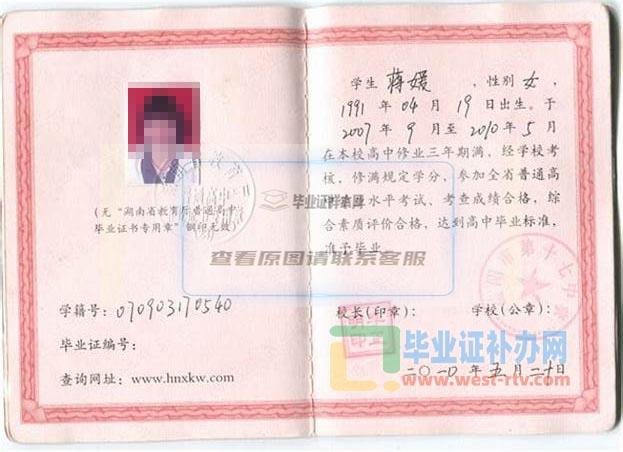 (无“湖南省教育厅普通高中
毕业证书专用章”钢印无效)
学籍号：070903170540
毕业证编号：
查询网址：www.hnxkw.com
学生 蒋媛 ，性别 女 ，
1991 年 04 月 19 日出生。于
2007 年 9 月 至 2010 年 5 月
在本校高中修业三年期满，经学校考
核，修满规定学分，参加全省普通高
中学业水平考试、考查成绩合格，综
合素质评价合格，达到高中毕业标准，
准予毕业。
校长(印章)：
学校(公章)：
第十七中学
二〇一〇年五月二十日
毕业证样本网
查看原图请联系客服
毕业证补办网
www.west-rtv.com